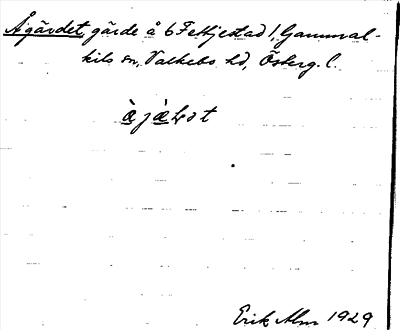 Ågärdet, gärde å 6 Fettjestad, Gammal-
kils sn, Valkebo hd, Österg. l.
Erik Alm 1929